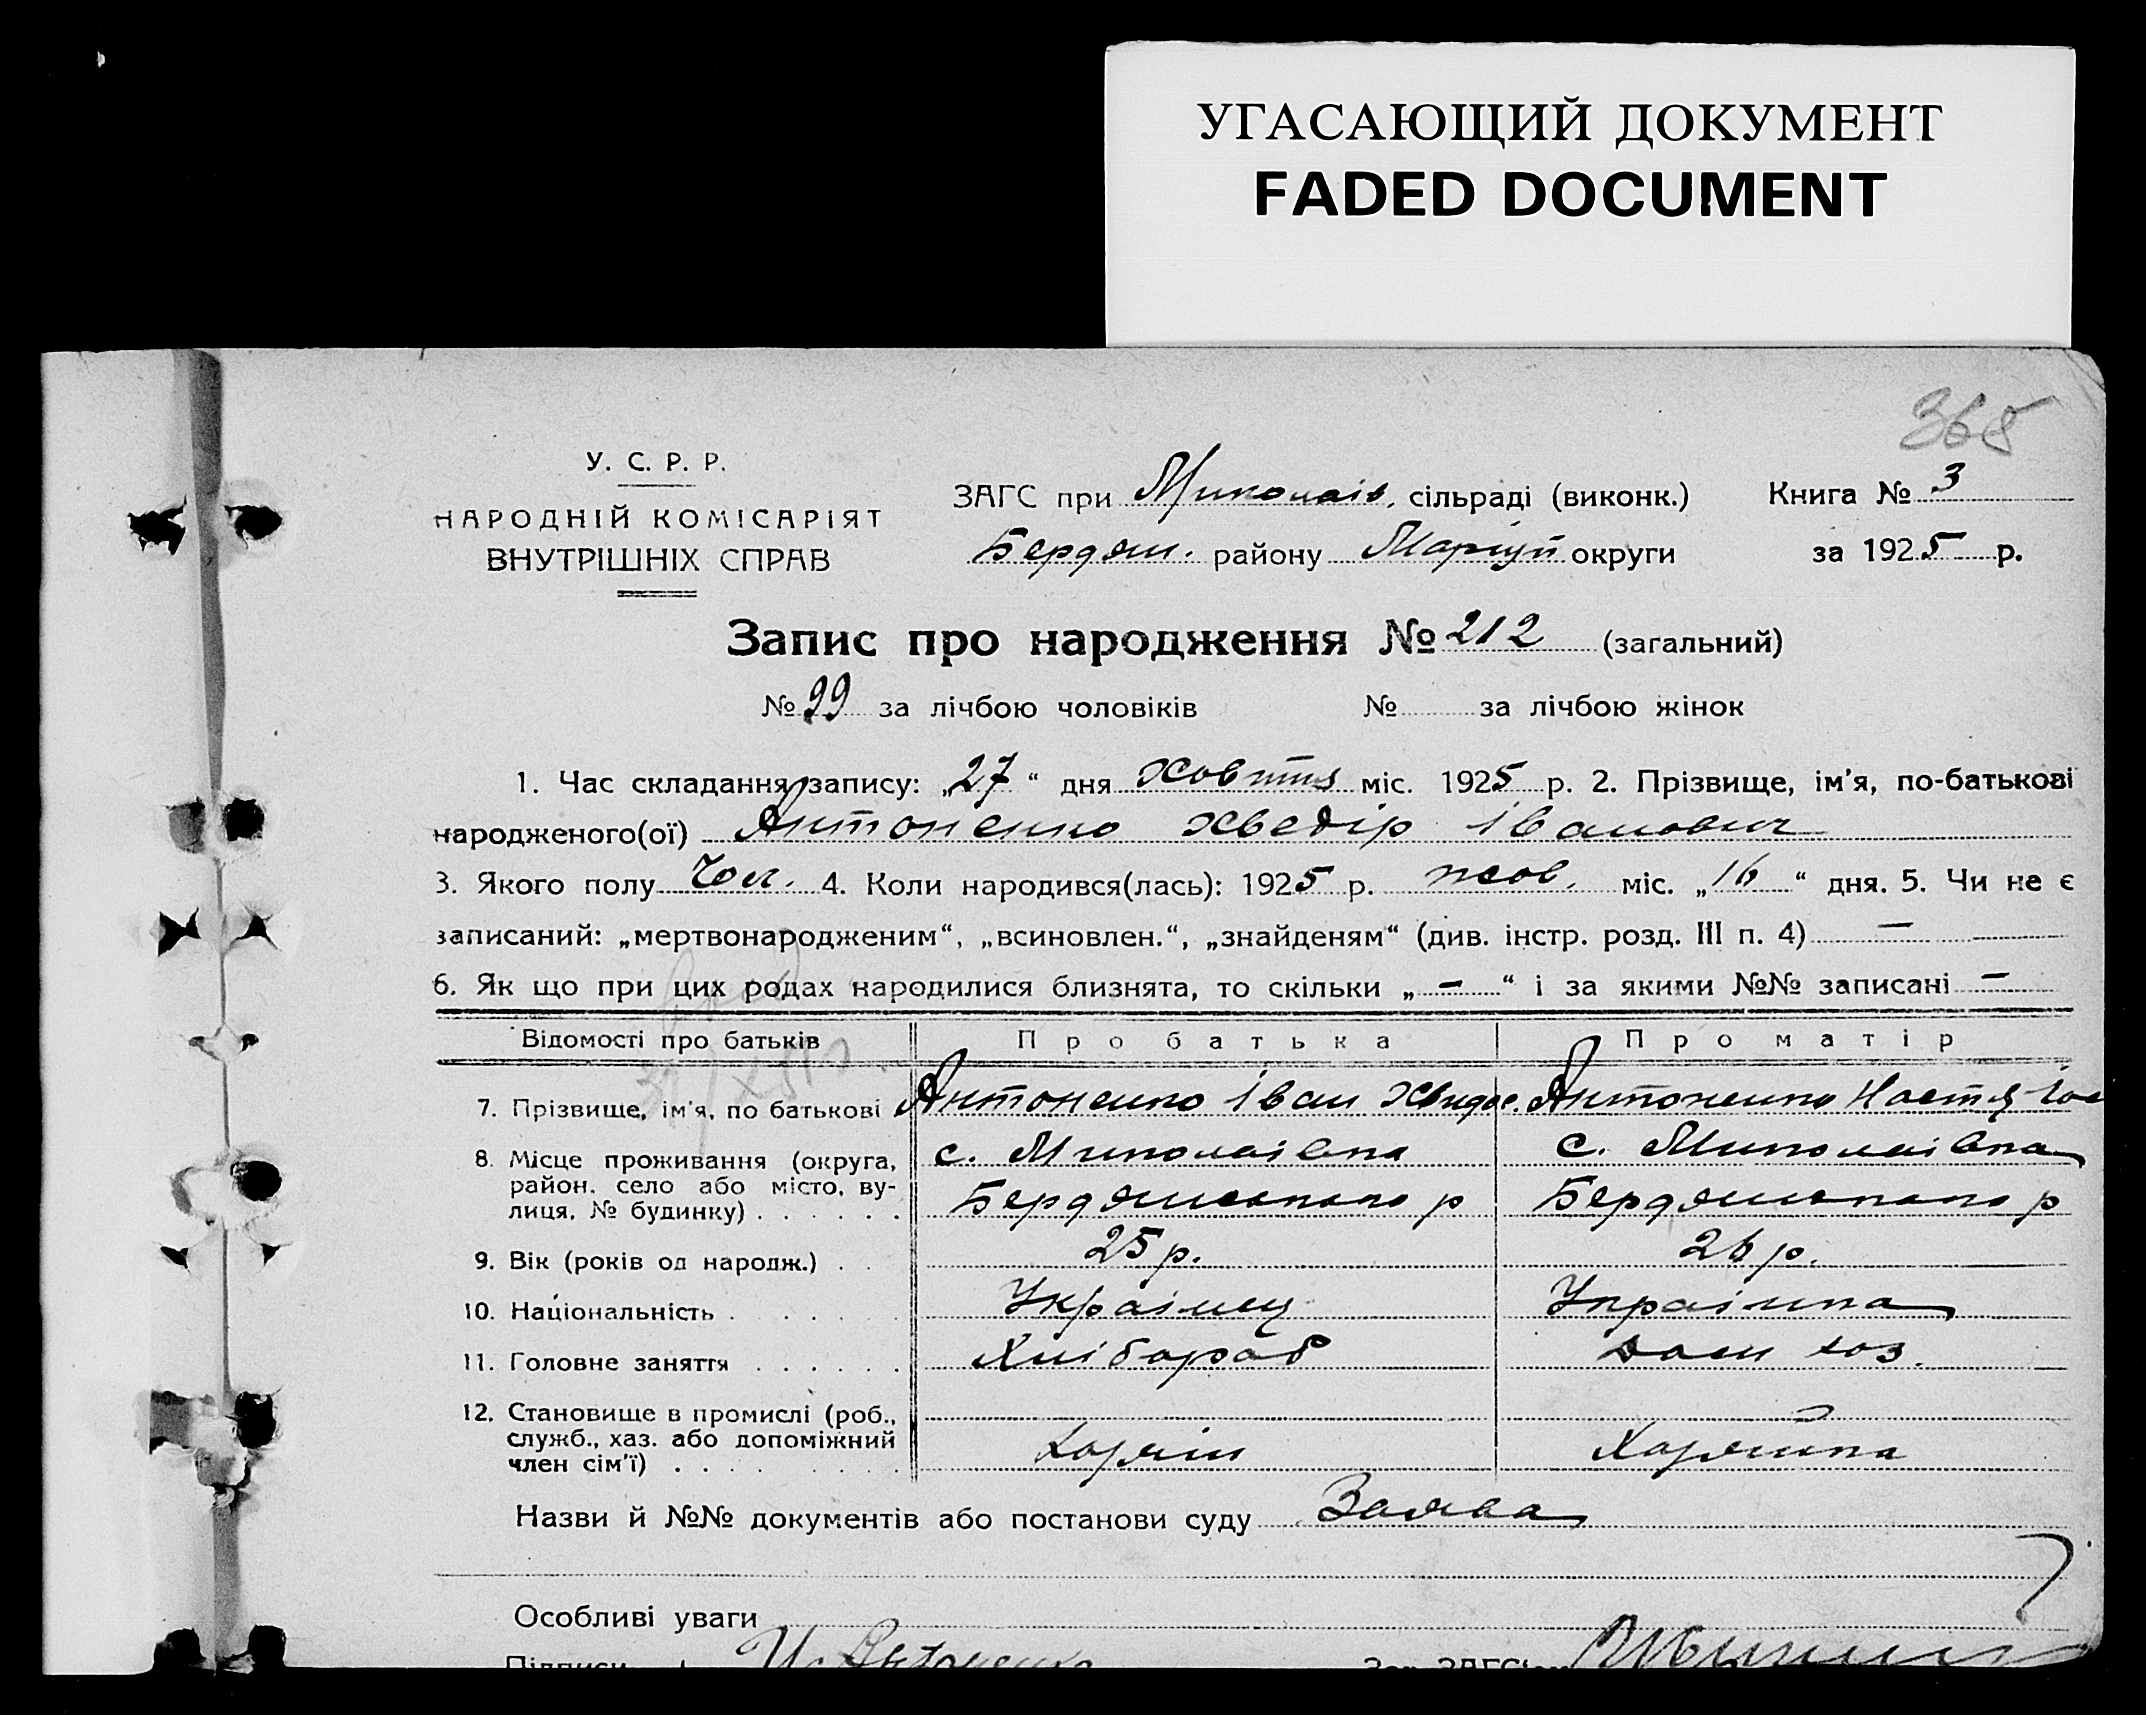 УГАСАЮЩИЙ ДОКУМЕНТ
FADED DOCUMENT
365
У. С. Р. Р.
НАРОДНІЙ КОМІСАРІЯТ
ВНУТРІШНІХ СПРАВ
ЗАГС при Миколаїв. сільраді (виконк.) Книга № 3
Бердян. району Маріуп округи за 1925 р.
Запис про народження № 212 (загальний)
№ 99 за лічбою чоловіків № за лічбою жінок
1. Час складання запису: „27“ дня Жовтня міс. 1925 р. 2. Прізвище, ім'я, по-батькові
народженого(ої) Антоненко Хведір Іванович
3. Якого полу Чол. 4. Коли народився(лась): 1925 р. жов. міс. „16“ дня. 5. Чи не є
записаний: „мертвонародженим“, „всиновлен.“, „знайденям“ (див. інстр. розд. III п. 4) —
6. Як що при цих родах народилися близнята, то скільки „ — “ і за якими №№ записані —
Відомості про батьків Про батька Про матір
7. Прізвище, ім'я, по батькові Антоненко Іван Антоненко Настя
8. Місце проживання (округа, район, село або місто, вулиця, № будинку) с. Миколаївка с. Миколаївка
Бердянського р Бердянського р
9. Вік (років од народж.) 25 р. 26 р.
10. Національність Українец Українка
11. Головне заняття Хлібороб дом хоз.
12. Становище в промислі (роб., служб., хаз. або допоміжний член сім'ї) Хазяїн Хазяйка
Назви й №№ документів або постанови суду Заява
Особливі уваги
Підписи И Антоненко Зав. ЗАГС'ом